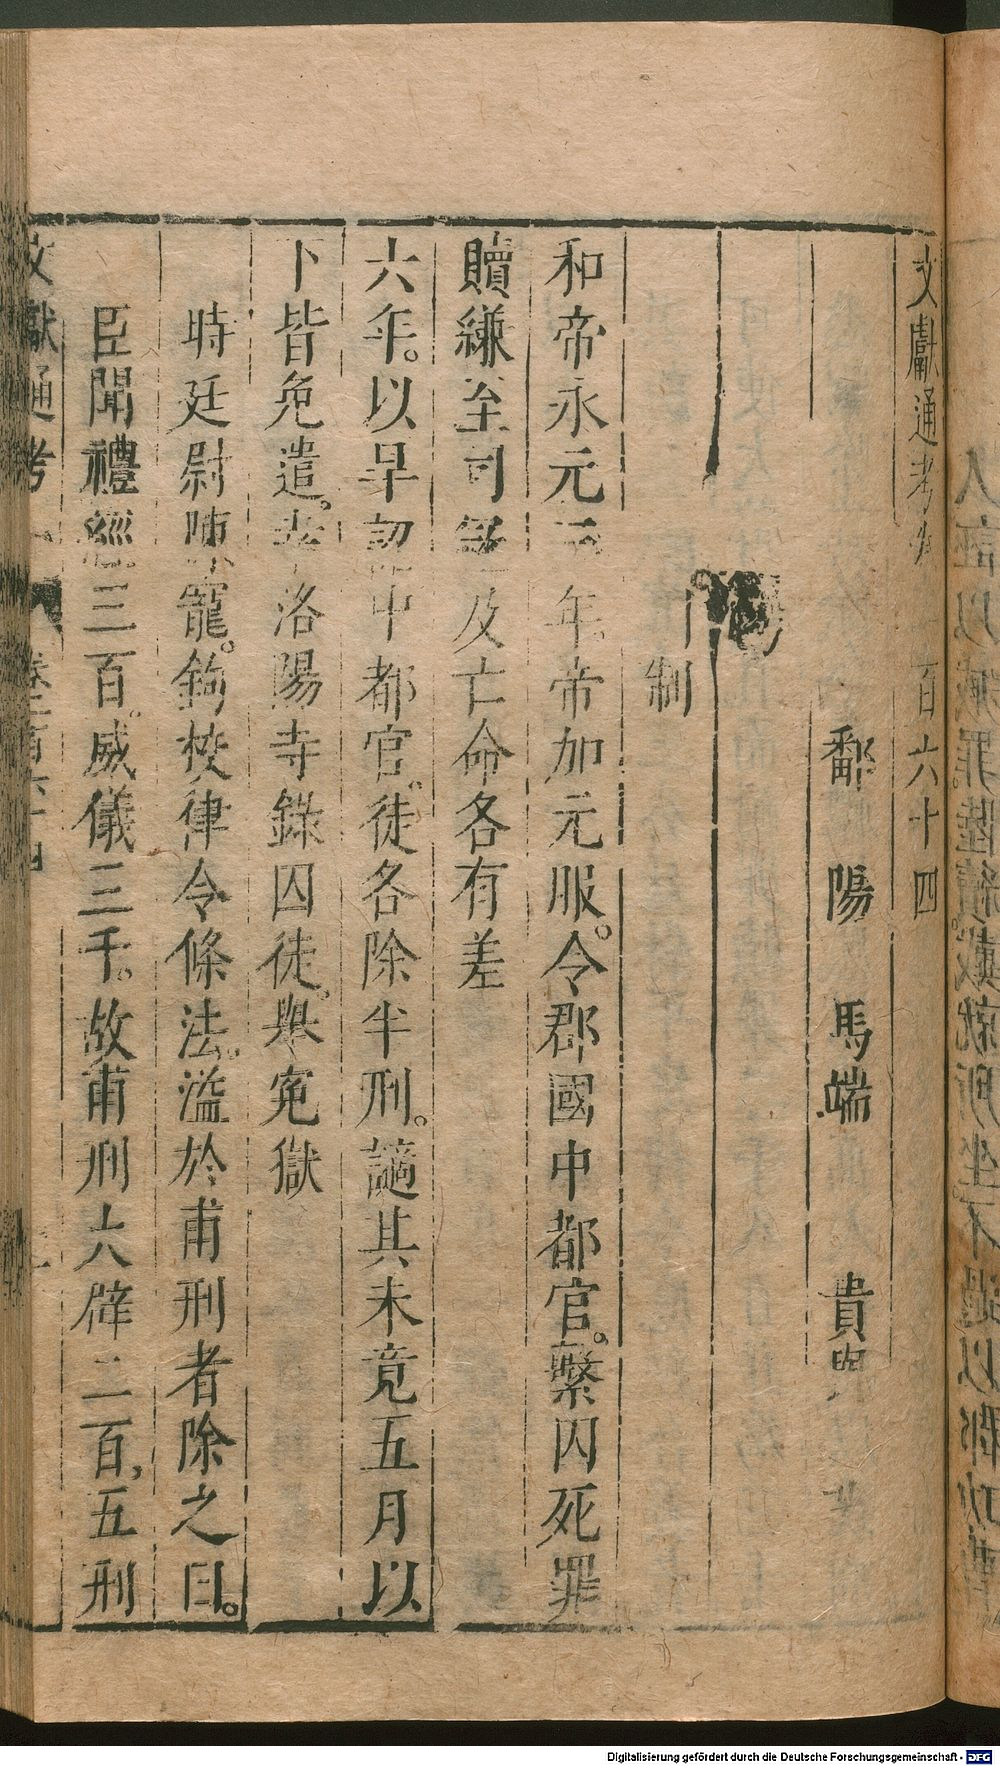 文獻通考卷 百六十四
鄱陽馬端 貴與
制
和帝永元三年帝加元服令郡國中都官繫囚死罪
贖縑至司 及亡命各有差
六年以旱詔中都官徒各除半刑謫其未竟五月以
下皆免遣幸洛陽寺錄囚徒舉冤獄
時廷尉陳寵鉤校律令條法溢於甫刑者除之曰
臣聞禮經三百威儀三千故甫刑大辟二百五刑
文獻通考 卷 百六十四
Digitalisierung gefördert durch die Deutsche Forschungsgemeinschaft - DFG